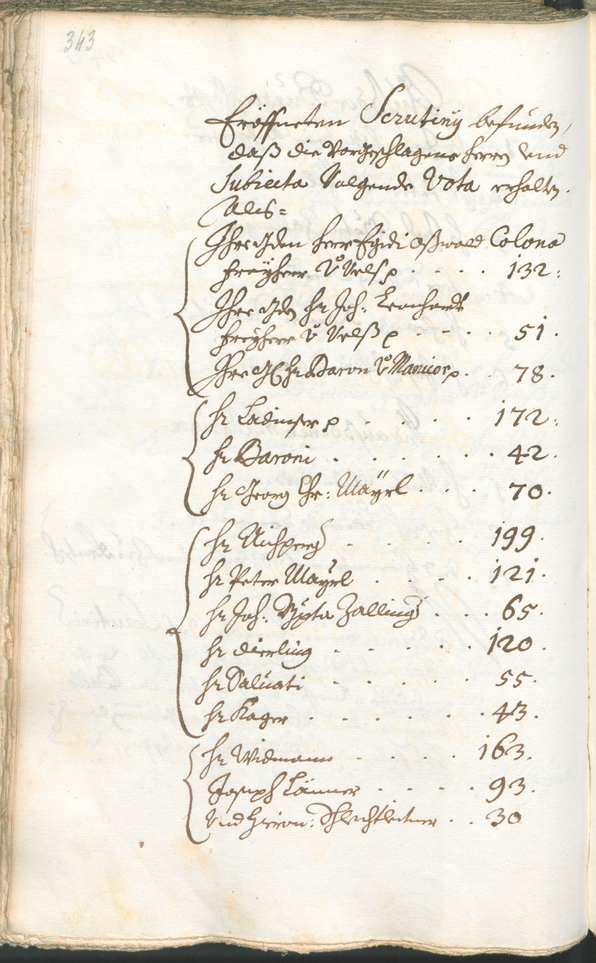 343
Eröffneten Scrutiny befunden,
daß die Vorgeschlagene herrn und
Subiecta Volgende Vota erhalten.
Als=
Ihro Gden herr Egidi Oßwald Colona
freyherr v Velß p .... 132.
Ihro Gden hr Joh: Leonhardt
freyherr v Velß p .... 51.
Ihro hr Baron v Manicor p .. 78.
hr Ladinser p ..... 172.
hr Baroni ....... 42.
hr Georg Chr: Mayrl .... 70.
hr Aichperg ..... 199.
hr Peter Mayrl ..... 121.
hr Joh: Bpta Zallinger ... 65.
hr Dierling ...... 120.
hr Saluati ....... 55.
hr Kager ....... 43.
hr Widmann .... 163.
Joseph Länner ..... 93.
Vnd Hieron: Schlechtleitner .. 30